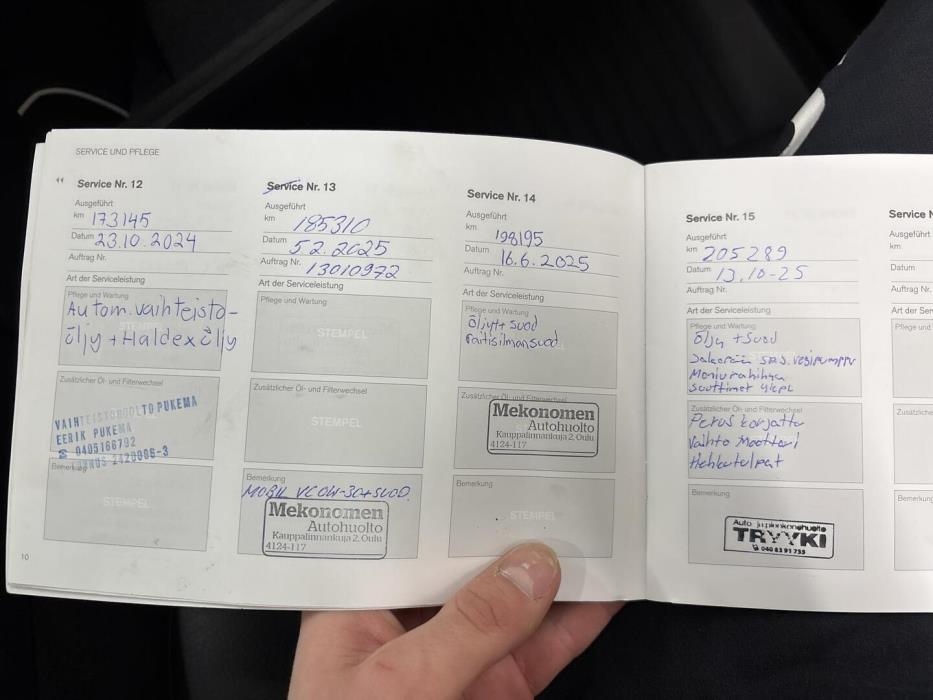 SERVICE UND PFLEGE
Service Nr. 12
Ausgeführt
km 173145
Datum 23.10.2024
Auftrag Nr.
Art der Serviceleistung
Pflege und Wartung
Autom.vaihteisto-
öljy + Haldex öljy
Zusätzlicher Öl- und Filterwechsel
VAIHTEISTOHUOLTO PUKEMA
EERIK PUKEMA
0405166792
2420996-3
Bemerkung
STEMPEL
10
Service Nr. 13
Ausgeführt
km 185310
Datum 5.2.2025
Auftrag Nr. 13010972
Art der Serviceleistung
Pflege und Wartung
STEMPEL
Zusätzlicher Öl- und Filterwechsel
STEMPEL
Bemerkung
MOBIL VC0W-30+SUOD.
Mekonomen
Autohuolto
Kauppalinnankuja 2, Oulu
4124-117
Service Nr. 14
Ausgeführt
km 198195
Datum 16.6.2025
Auftrag Nr.
Art der Serviceleistung
Pflege und Wartung
öljyt + suod
raitisilmansuod
Zusätzlicher Öl- und Filterwechsel
Mekonomen
Autohuolto
Kauppalinnankuja 2, Oulu
4124-117
Bemerkung
STEMPEL
Service Nr. 15
Ausgeführt
km 205289
Datum 13.10-25
Auftrag Nr.
Art der Serviceleistung
Pflege und Wartung
öljy + suod
Jakopää sas. vesipumppu
Moniurahihna
Suuttimet 4kpl
Zusätzlicher Öl- und Filterwechsel
Perus korjattu
Vaihto Moottori
Hehkutulpat
Bemerkung
Auto ja pienkonehuolto
TRYYKI
040 83 91 735
Service N
Ausgeführt
km
Datum
Auftrag Nr.
Art der Serv
Pflege und
Zusätzliche
Bemerkung